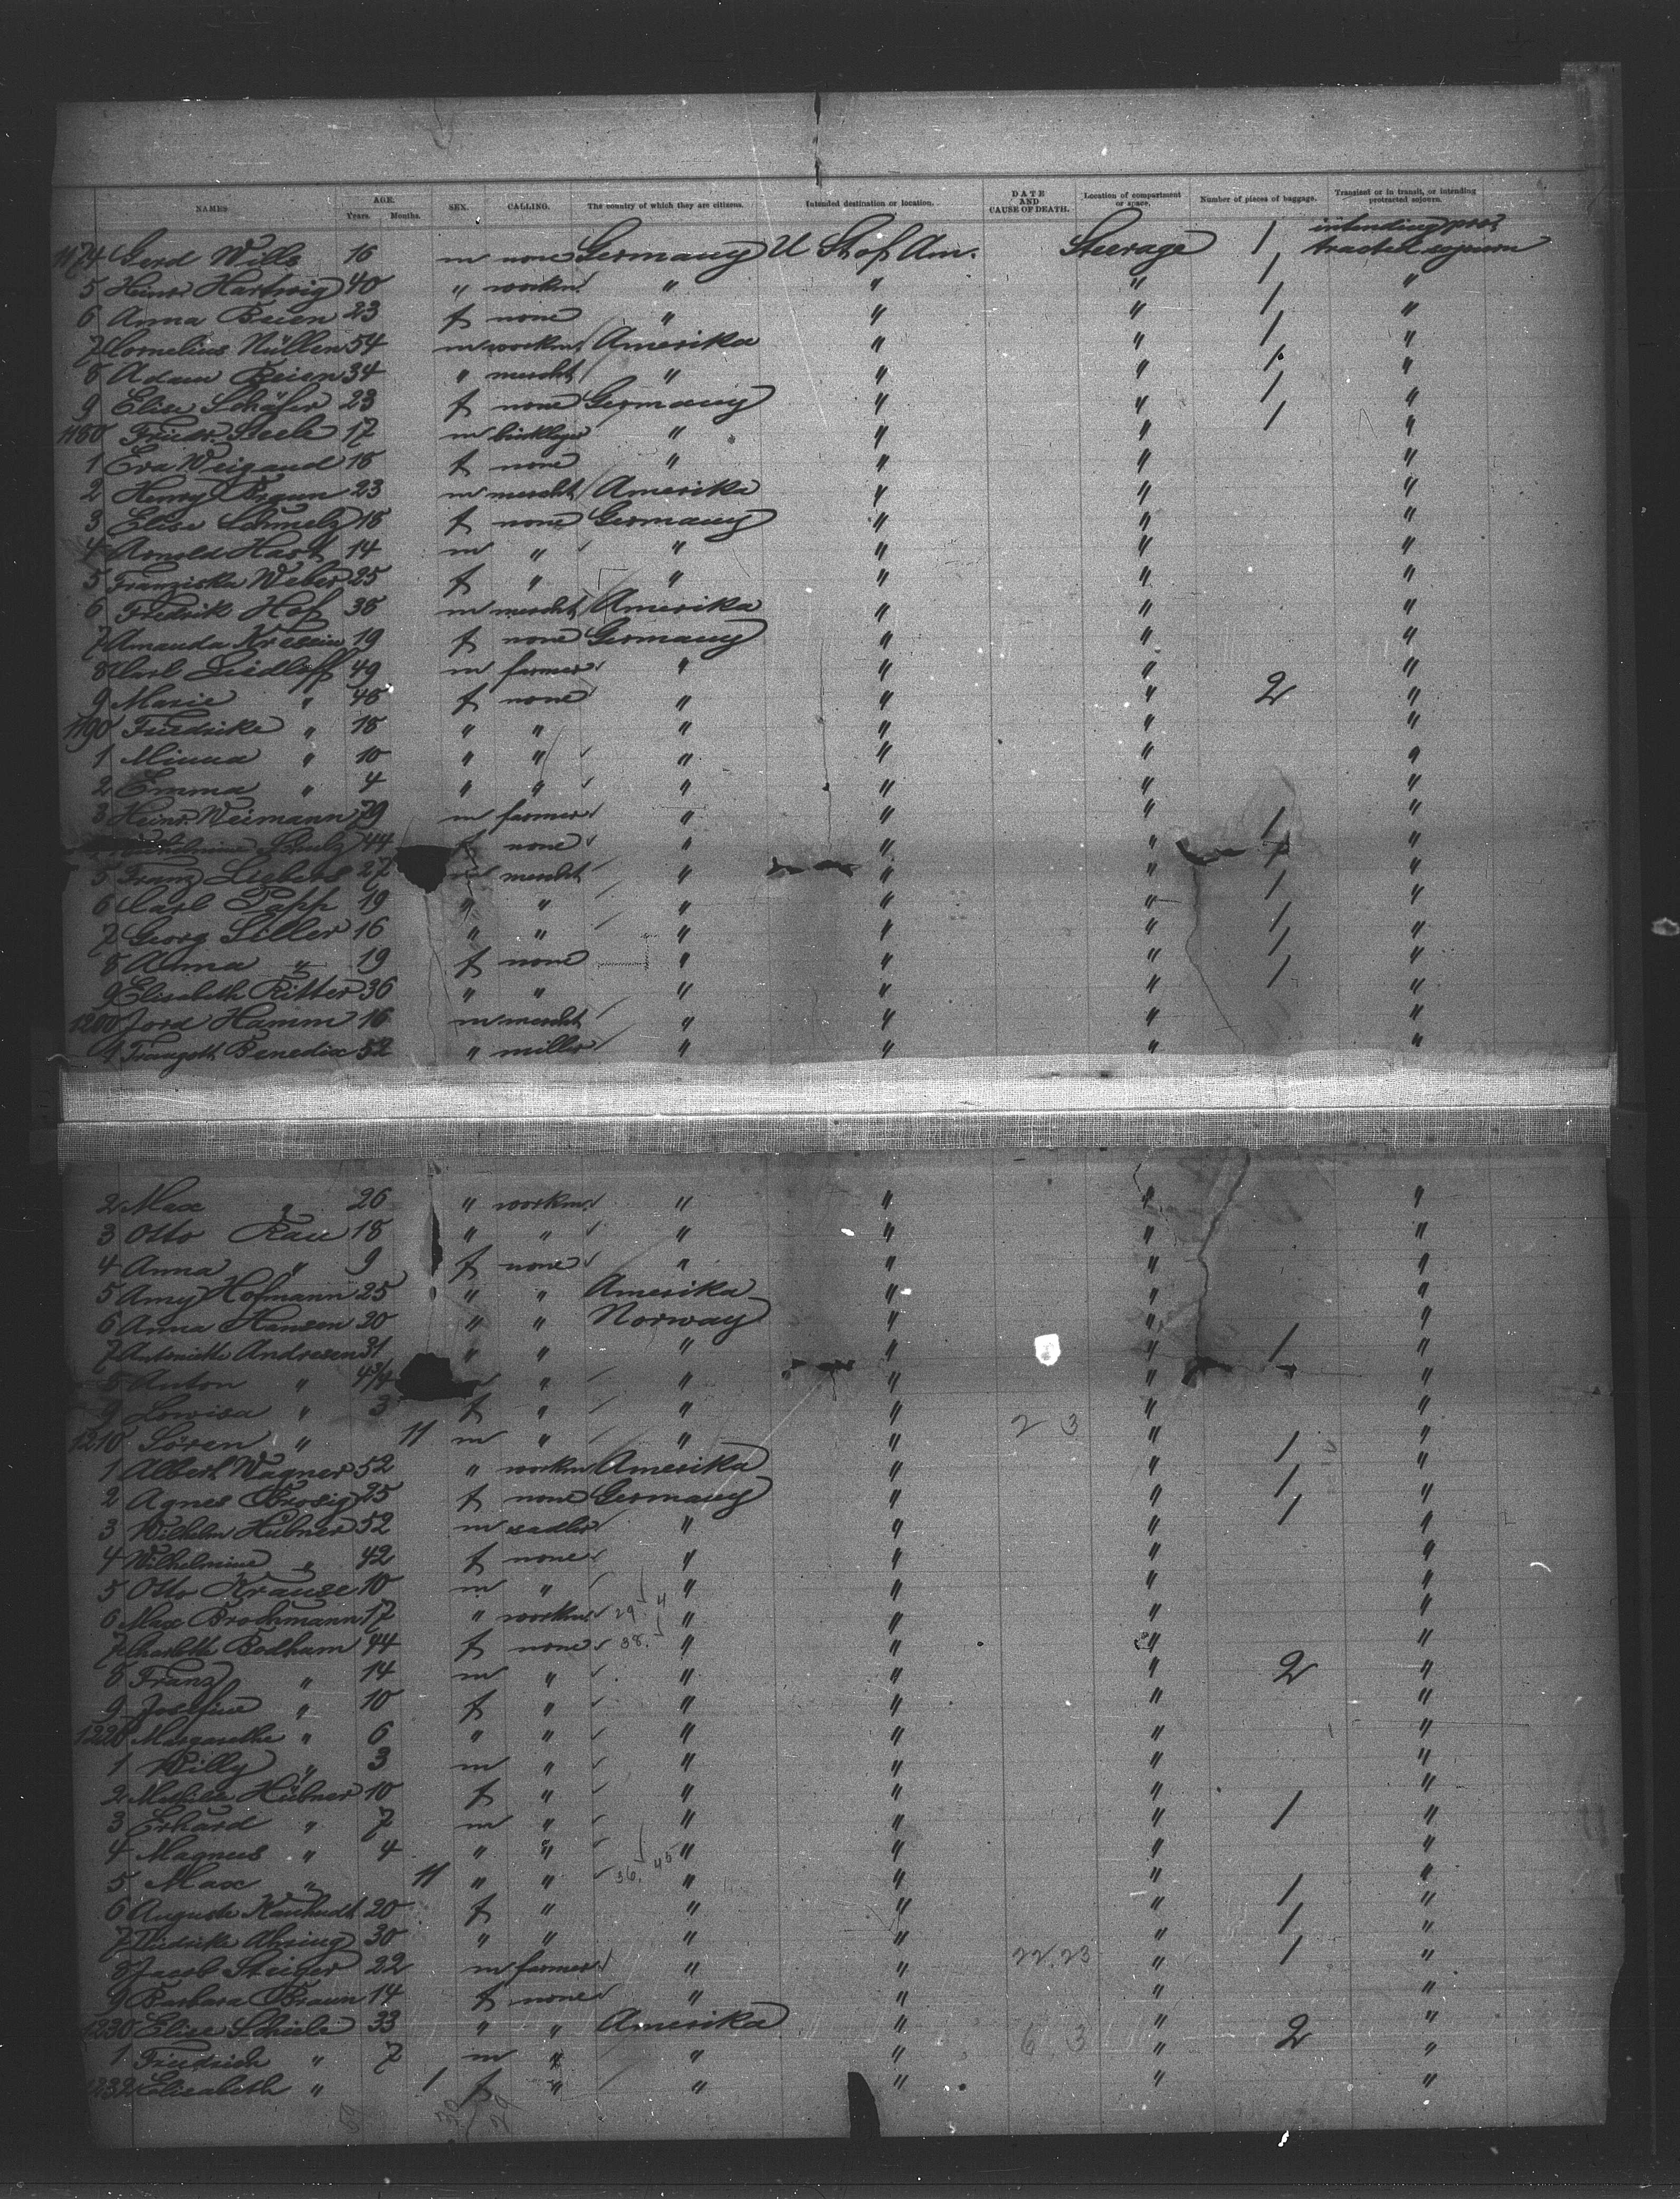 NAMES AGE. Years. Months. SEX. CALLING. The country of which they are citizens. Intended destination or location. DATE AND CAUSE OF DEATH. Location of compartment or space. Number of pieces of baggage. Transient or in transit, or intending protracted sojourn.
1174 Gerd Wills 16 m none Germany U St of Am. Steerage 1 intending pro- tracted sojourn
5 Heinr. Hartwig 40 " workm. " " " 1 "
6 Anna Beien 23 f none " " " 1 "
7 Cornelius Nüllen 54 m workm. Amerika " " 1 "
8 Adam Beien 34 " mercht " " " 1 "
9 Elise Schäfer 23 f none Germany " " 1 "
1180 Friedr. Steele 17 m " " " 1 "
1 Eva Weigand 18 f none " " " "
2 Henry Braun 23 m mercht Amerika " " "
3 Elise Schmelz 18 f none Germany " " "
4 Arnold Hast 14 m " " " " "
5 Franziska Weber 25 f " " " " "
6 Fredrik Hof 38 m mercht Amerika " " "
7 Amanda 19 f none Germany " " "
8 Carl Liedloff 49 m farmer " " " "
9 Marie " 48 f none " " " 2 "
1190 Friedricke " 18 " " " " " "
1 Minna " 10 " " " " " "
2 Emma " 4 " " " " " "
3 Heinr. Weimann 79 m farmer " " " 1 "
44 f none " " " 1 "
5 Franz Liebers 27 m mercht " " " 1 "
6 Carl Papp 19 " " " " " 1 "
7 Georg Siller 16 " " " " " 1 "
8 Anna " 19 f none " " " 1 "
9 Elisabeth Ritter 36 " " " " " 1 "
1200 Jord Hamm 16 m mercht " " " "
1 Traugott Benedix 52 " miller " " " "
2 Max " 26 " workm. " " " "
3 Otto Rau 18 " " " " " "
4 Anna " 9 f none " " " "
5 Amy Hofmann 25 " " Amerika " " "
6 Anna Hansen 20 " " Norway " " "
7 Antoinette Andresen 31 " " " " " 1 "
8 Anton " 4 3/4 " " " " "
9 Lowisa " 3 f " " " " "
1210 Sören " 11 m " " " 2 3 " "
1 Albert Wagner 52 " workm Amerika " " 1 "
2 Agnes Brosig 25 f none Germany " " 1 "
3 Wilhelm Hübner 52 m sadler " " " 1 "
4 Wilhelmine " 42 f none " " " "
5 Otto Krause 10 m " " " " "
6 Max Brochmann 17 " workm. 29. 4 " " " "
7 Charlotte Bodham 44 f none 38. " " " "
8 Franz " 14 m " " " " 2 "
9 Josefine " 10 f " " " " "
1220 Margarethe " 6 " " " " " "
1 Willy " 3 m " " " " "
2 Mathilde Hübner 10 f " " " " "
3 Erhard " 7 m " " " " 1 "
4 Magnus " 4 " " " " " "
5 Max " 11 " " 36. 45 " " " "
6 Auguste 20 f " " " " 1 "
7 Friedrike 30 " " " " " 1 "
8 Jacob Steiger 22 m farmer " " 22. 23 " 1 "
9 Barbara Braun 14 f none " " " "
1230 Elise Schiele 33 " " Amerika " " "
1 Friedrich " 7 m " " " 6 3 " 2 "
1232 Elisabeth " 1 f " " " " "
59 30 29